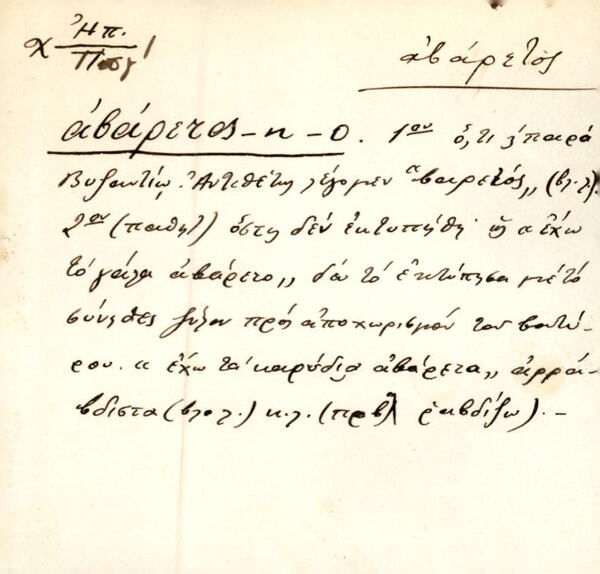 χ Ἤπ.
Πωγ/
ἀβάρετος
ἀβάρετος -η -ο. 1ον ὅ,τι κ παρὰ
Βυζαντίῳ. Ἀντιθέτως λέγομεν "βαρετός,, (βλ. λ).
2ον (παθητ) ὅστις δὲν ἐκτυπήθη « ἔχω
τὸ γάλα ἀβάρετο,, δὲν τὸ ἐκτύπησα μὲ τὸ
σύνηθες ξύλον πρὸς ἀποχωρισμὸν τοῦ βουτύ-
ρου. « ἔχω τὰ καρύδια ἀβάρετα,, ἀρρά-
βδιστα (βλ. λ.) κ.λ. (πρβλ ραβδίζω). -